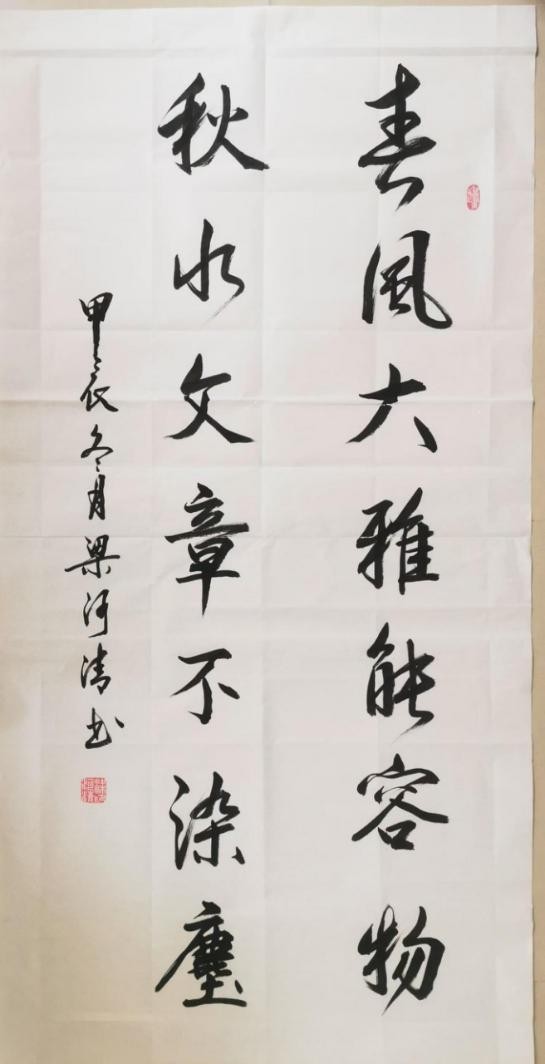 春風大雅能容物
秋水文章不染塵
甲辰冬月梁河清书